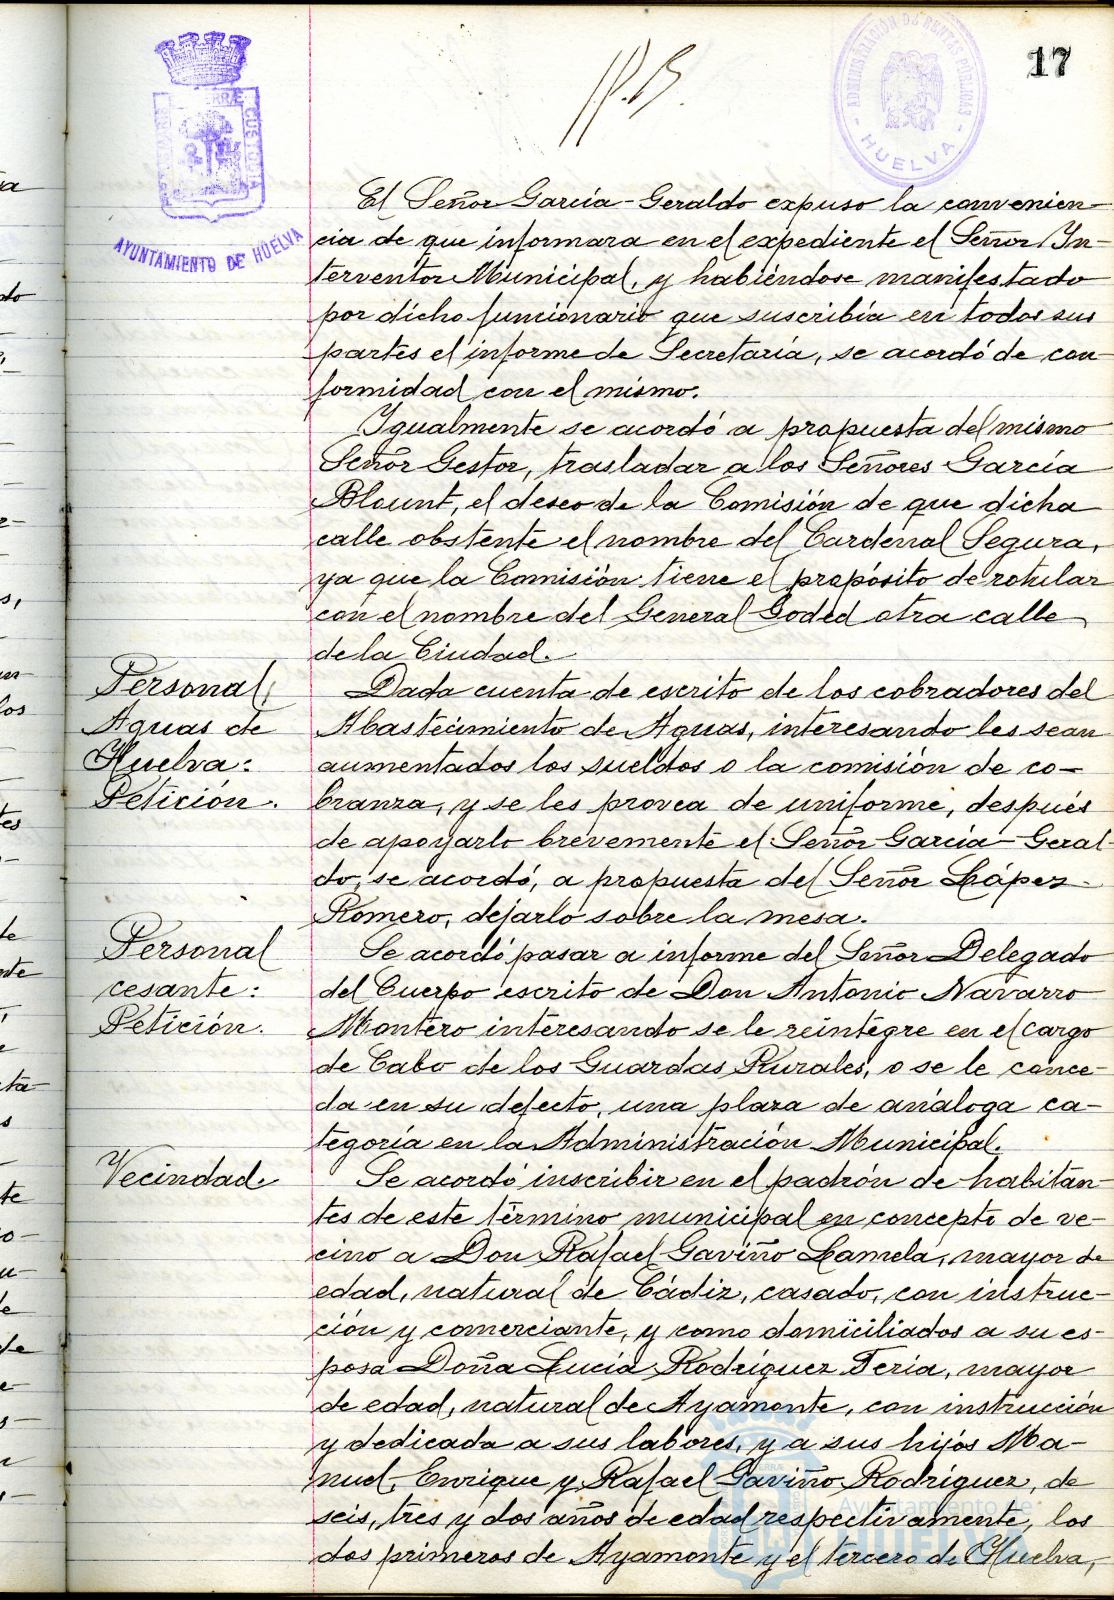 17
ADMINISTRACIÓN DE RENTAS PÚBLICAS
HUELVA
AYUNTAMIENTO DE HUELVA
El Señor García-Geraldo expuso la convenien-
cia de que informara en el expediente el Señor In-
terventor Municipal, y habiéndose manifestado
por dicho funcionario que suscribía en todos sus
partes el informe de Secretaría, se acordó de con-
formidad con el mismo.
Igualmente se acordó a propuesta del mismo
Señor Gestor, trasladar a los Señores García
Blount, el deseo de la Comisión de que dicha
calle obstente el nombre del Cardenal Segura,
ya que la Comisión tiene el propósito de rotular
con el nombre del General Goded otra calle
de la Ciudad.
Personal,
Aguas de
Huelva:
Petición.
Dada cuenta de escrito de los cobradores del
Abastecimiento de Aguas, interesando les sean
aumentados los sueldos o la comisión de co-
branza, y se les provea de uniforme, después
de apoyarlo brevemente el Señor García-Geral-
do, se acordó, a propuesta del Señor López-
Romero, dejarlo sobre la mesa.
Personal
cesante:
Petición.
Se acordó pasar a informe del Señor Delegado
del Cuerpo escrito de Don Antonio Navarro
Montero interesando se le reintegre en el cargo
de Cabo de los Guardas Rurales, o se le conce-
da en su defecto, una plaza de análoga ca-
tegoría en la Administración Municipal.
Vecindad.
Se acordó inscribir en el padrón de habitan-
tes de este término municipal en concepto de ve-
cino a Don Rafael Gaviño Lamela, mayor de
edad, natural de Cádiz, casado, con instruc-
ción y comerciante, y como domiciliados a su es-
posa Doña Lucía Rodríguez Feria, mayor
de edad, natural de Ayamonte, con instrucción
y dedicada a sus labores, y a sus hijos Ma-
nuel, Enrique y Rafael Gaviño Rodríguez, de
seis, tres y dos años de edad respectivamente, los
dos primeros de Ayamonte y el tercero de Huelva,
Ayuntamiento de
HUELVA